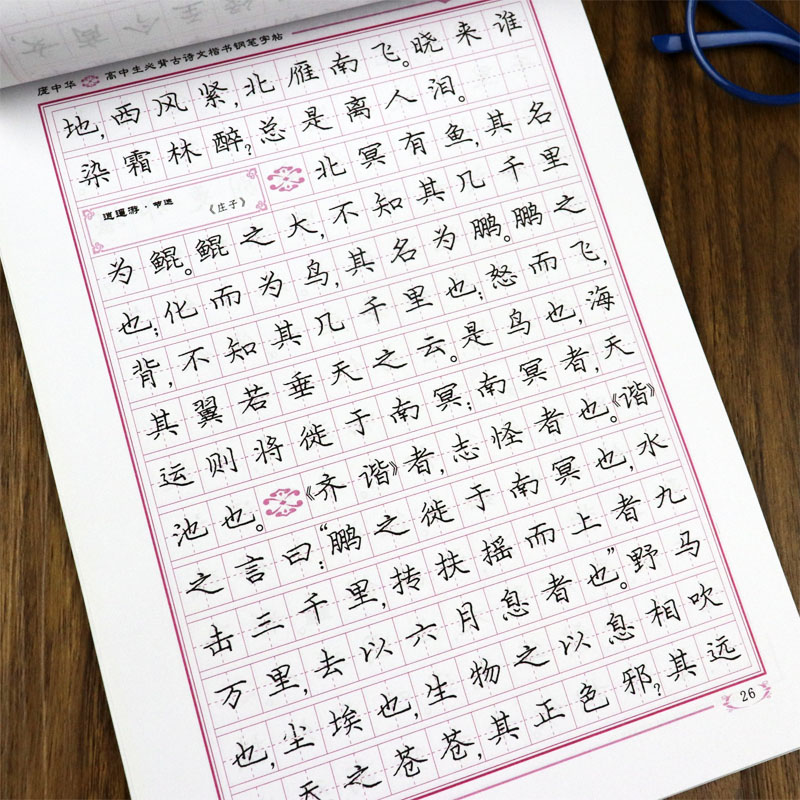 庞中华 高中生必背古诗文楷书钢笔字帖
地,西风紧,北雁南飞。晓来谁
染霜林醉?总是离人泪。
逍遥游·节选 《庄子》
北冥有鱼,其名
为鲲。鲲之大,不知其几千里
也;化而为鸟,其名为鹏。鹏之
背,不知其几千里也;怒而飞,
其翼若垂天之云。是鸟也,海
运则将徙于南冥;南冥者,天
池也。《齐谐》者,志怪者也。《谐》
之言曰:“鹏之徙于南冥也,水
击三千里,抟扶摇而上者九
万里,去以六月息者也”。野马
也,尘埃也,生物之以息相吹
天之苍苍,其正色邪?其远
26